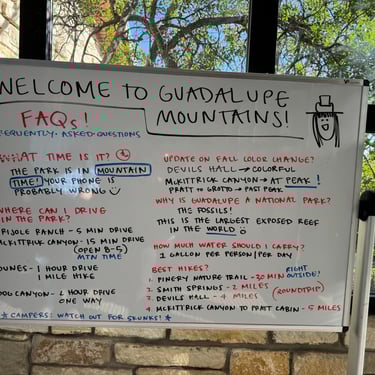 WELCOME TO GUADALUPE
MOUNTAINS!
FAQs!
FREQUENTLY-ASKED-QUESTIONS
WHAT TIME IS IT?
THE PARK IS IN MOUNTAIN
TIME! YOUR PHONE IS
PROBABLY WRONG
WHERE CAN I DRIVE
IN THE PARK?
FRIJOLE RANCH - 5 MIN DRIVE
MCKITTRICK CANYON - 15 MIN DRIVE
(OPEN 8-5)
MTN TIME
DUNES - 1 HOUR DRIVE
1 MILE HIKE
DOG CANYON - 2 HOUR DRIVE
ONE WAY
* CAMPERS: WATCH OUT FOR SKUNKS! *
UPDATE ON FALL COLOR CHANGE?
DEVILS HALL → COLORFUL
MCKITTRICK CANYON → AT PEAK!
PRATT TO GROTTO → PAST PEAK
WHY IS GUADALUPE A NATIONAL PARK?
THE FOSSILS!
THIS IS THE LARGEST EXPOSED REEF
IN THE WORLD
HOW MUCH WATER SHOULD I CARRY?
1 GALLON PER PERSON/PER DAY
BEST HIKES?
1. PINERY NATURE TRAIL - 20 MIN RIGHT OUTSIDE!
2. SMITH SPRINGS - 2 MILES
(ROUNDTRIP)
3. DEVILS HALL - 4 MILES
4. MCKITTRICK CANYON TO PRATT CABIN - 5 MILES